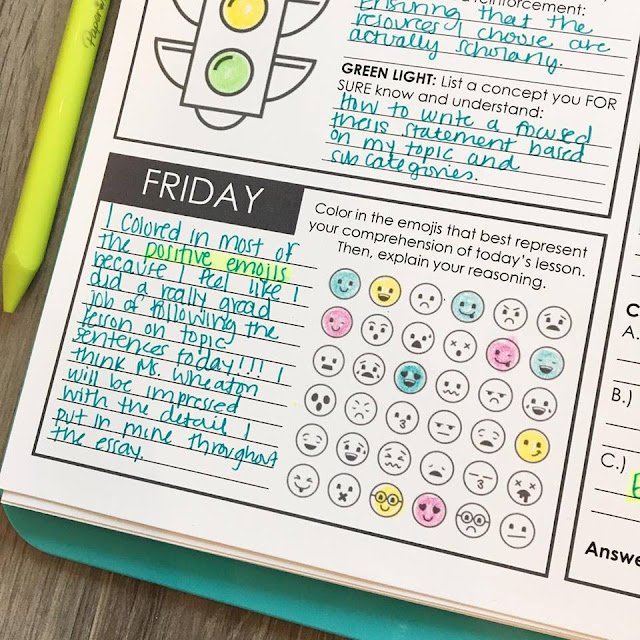 Paper
reinforcement:
Ensuring that the
resources I choose are
actually scholarly.
GREEN LIGHT: List a concept you FOR
SURE know and understand:
How to write a focused
thesis statement based
on my topic and
subcategories.
FRIDAY
I colored in most of
the positive emojis
because I feel like I
did a really good
job of following the
lesson on topic
sentences today!!! I
think Ms. Wheaton
will be impressed
with the detail I
put in mine throughout
the essay.
Color in the emojis that best represent
your comprehension of today's lesson.
Then, explain your reasoning.
A.
B.)
C.)
Answe